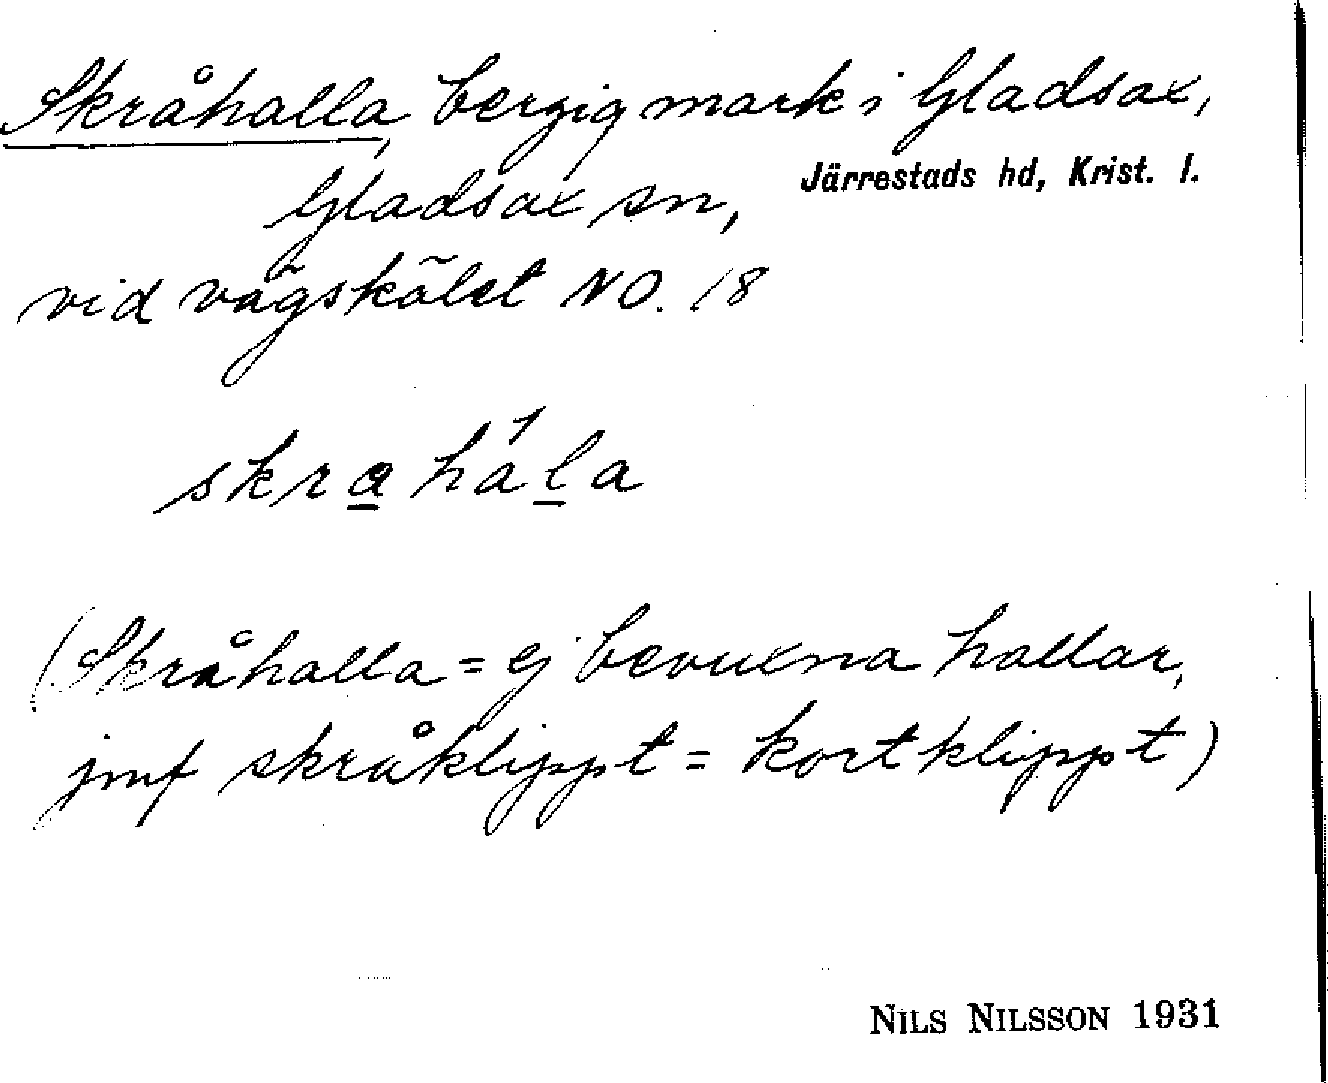 Skråhalla, bergig mark i Gladsax,
Gladsax sn, Järrestads hd, Krist. l.
vid vägskälet NO. 18
skrahála
(Skråhalla = ej bevuxna hallar,
jmf skråklippt = kortklippt)
NILS NILSSON 1931